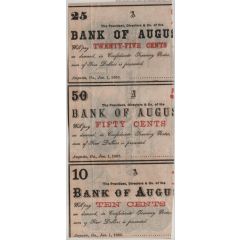 25
A
The President, Directors & Co. of the
BANK OF AUGUS
Will pay TWENTY-FIVE CENTS
on demand, in Confederate Treasury Notes,
sum of Five Dollars is presented.
Augusta, Ga., Jan. 1, 1863.
50
A
The President, Directors & Co. of the
BANK OF AUGUS
Will pay FIFTY CENTS
on demand, in Confederate Treasury Notes,
sum of Five Dollars is presented.
Augusta, Ga., Jan. 1, 1863.
10
A
The President, Directors & Co. of the
BANK OF AUGU
Will pay TEN CENTS
on demand, in Confederate Treasury Notes,
sum of Five Dollars is presented.
Augusta, Ga., Jan. 1, 1863.